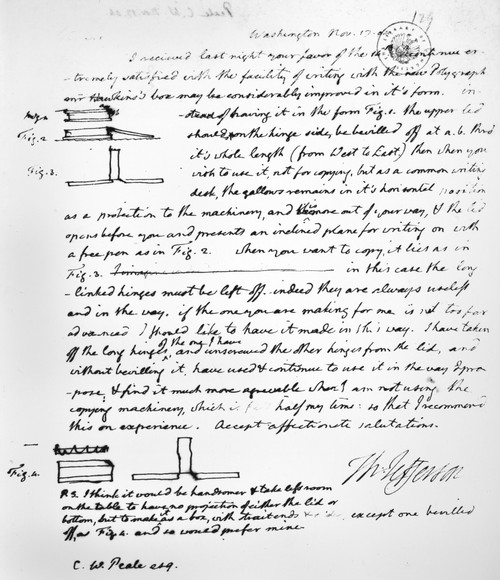 Peale C. W. Nov. 17. 04
129
Washington Nov. 17.
I received last night your favor of the 14th. I continue ex-
-tremely satisfied with the facility of writing with the new Polygraph
mr Hawkins's box may be considerably improved in it's form. in-
Fig. 1
-stead of having it in the form Fig. 1. the upper lid
Fig. 2
should, on the hinge side, be bevilled off at a. b. thro'
Fig. 3.
it's whole length (from West to East.) then when you
wish to use it, not for copying, but as a common writing
desk, the gallows remains in it's horizontal position
as a protection to the machinery, and is more out of your way, & the lid
opens before you and presents an inclined plane for writing on with
a free pen as in Fig. 2. when you want to copy, it lies as in
Fig. 3. in this case the long
-linked hinges must be left off. indeed they are always useless
and in the way. if the one you are making for me is not too far
advanced I should like to have it made in this way. I have taken
off the long hinges of the one I have, and unscrewed the other hinges from the lid, and
without bevilling it, have used & continue to use it in the way I pro-
-pose, & find it much more agreeable when I am not using the
copying machinery, which is half my time: so that I recommend
this on experience. Accept affectionate salutations.
Fig. 4.
Th: Jefferson
P.S. I think it would be handsomer & take less room
on the table to have no projection of either the lid or
bottom, but to make it as a box, with strait ends & sides, except one bevilled
off, as Fig. 4. and so would prefer mine
C. W. Peale esq.